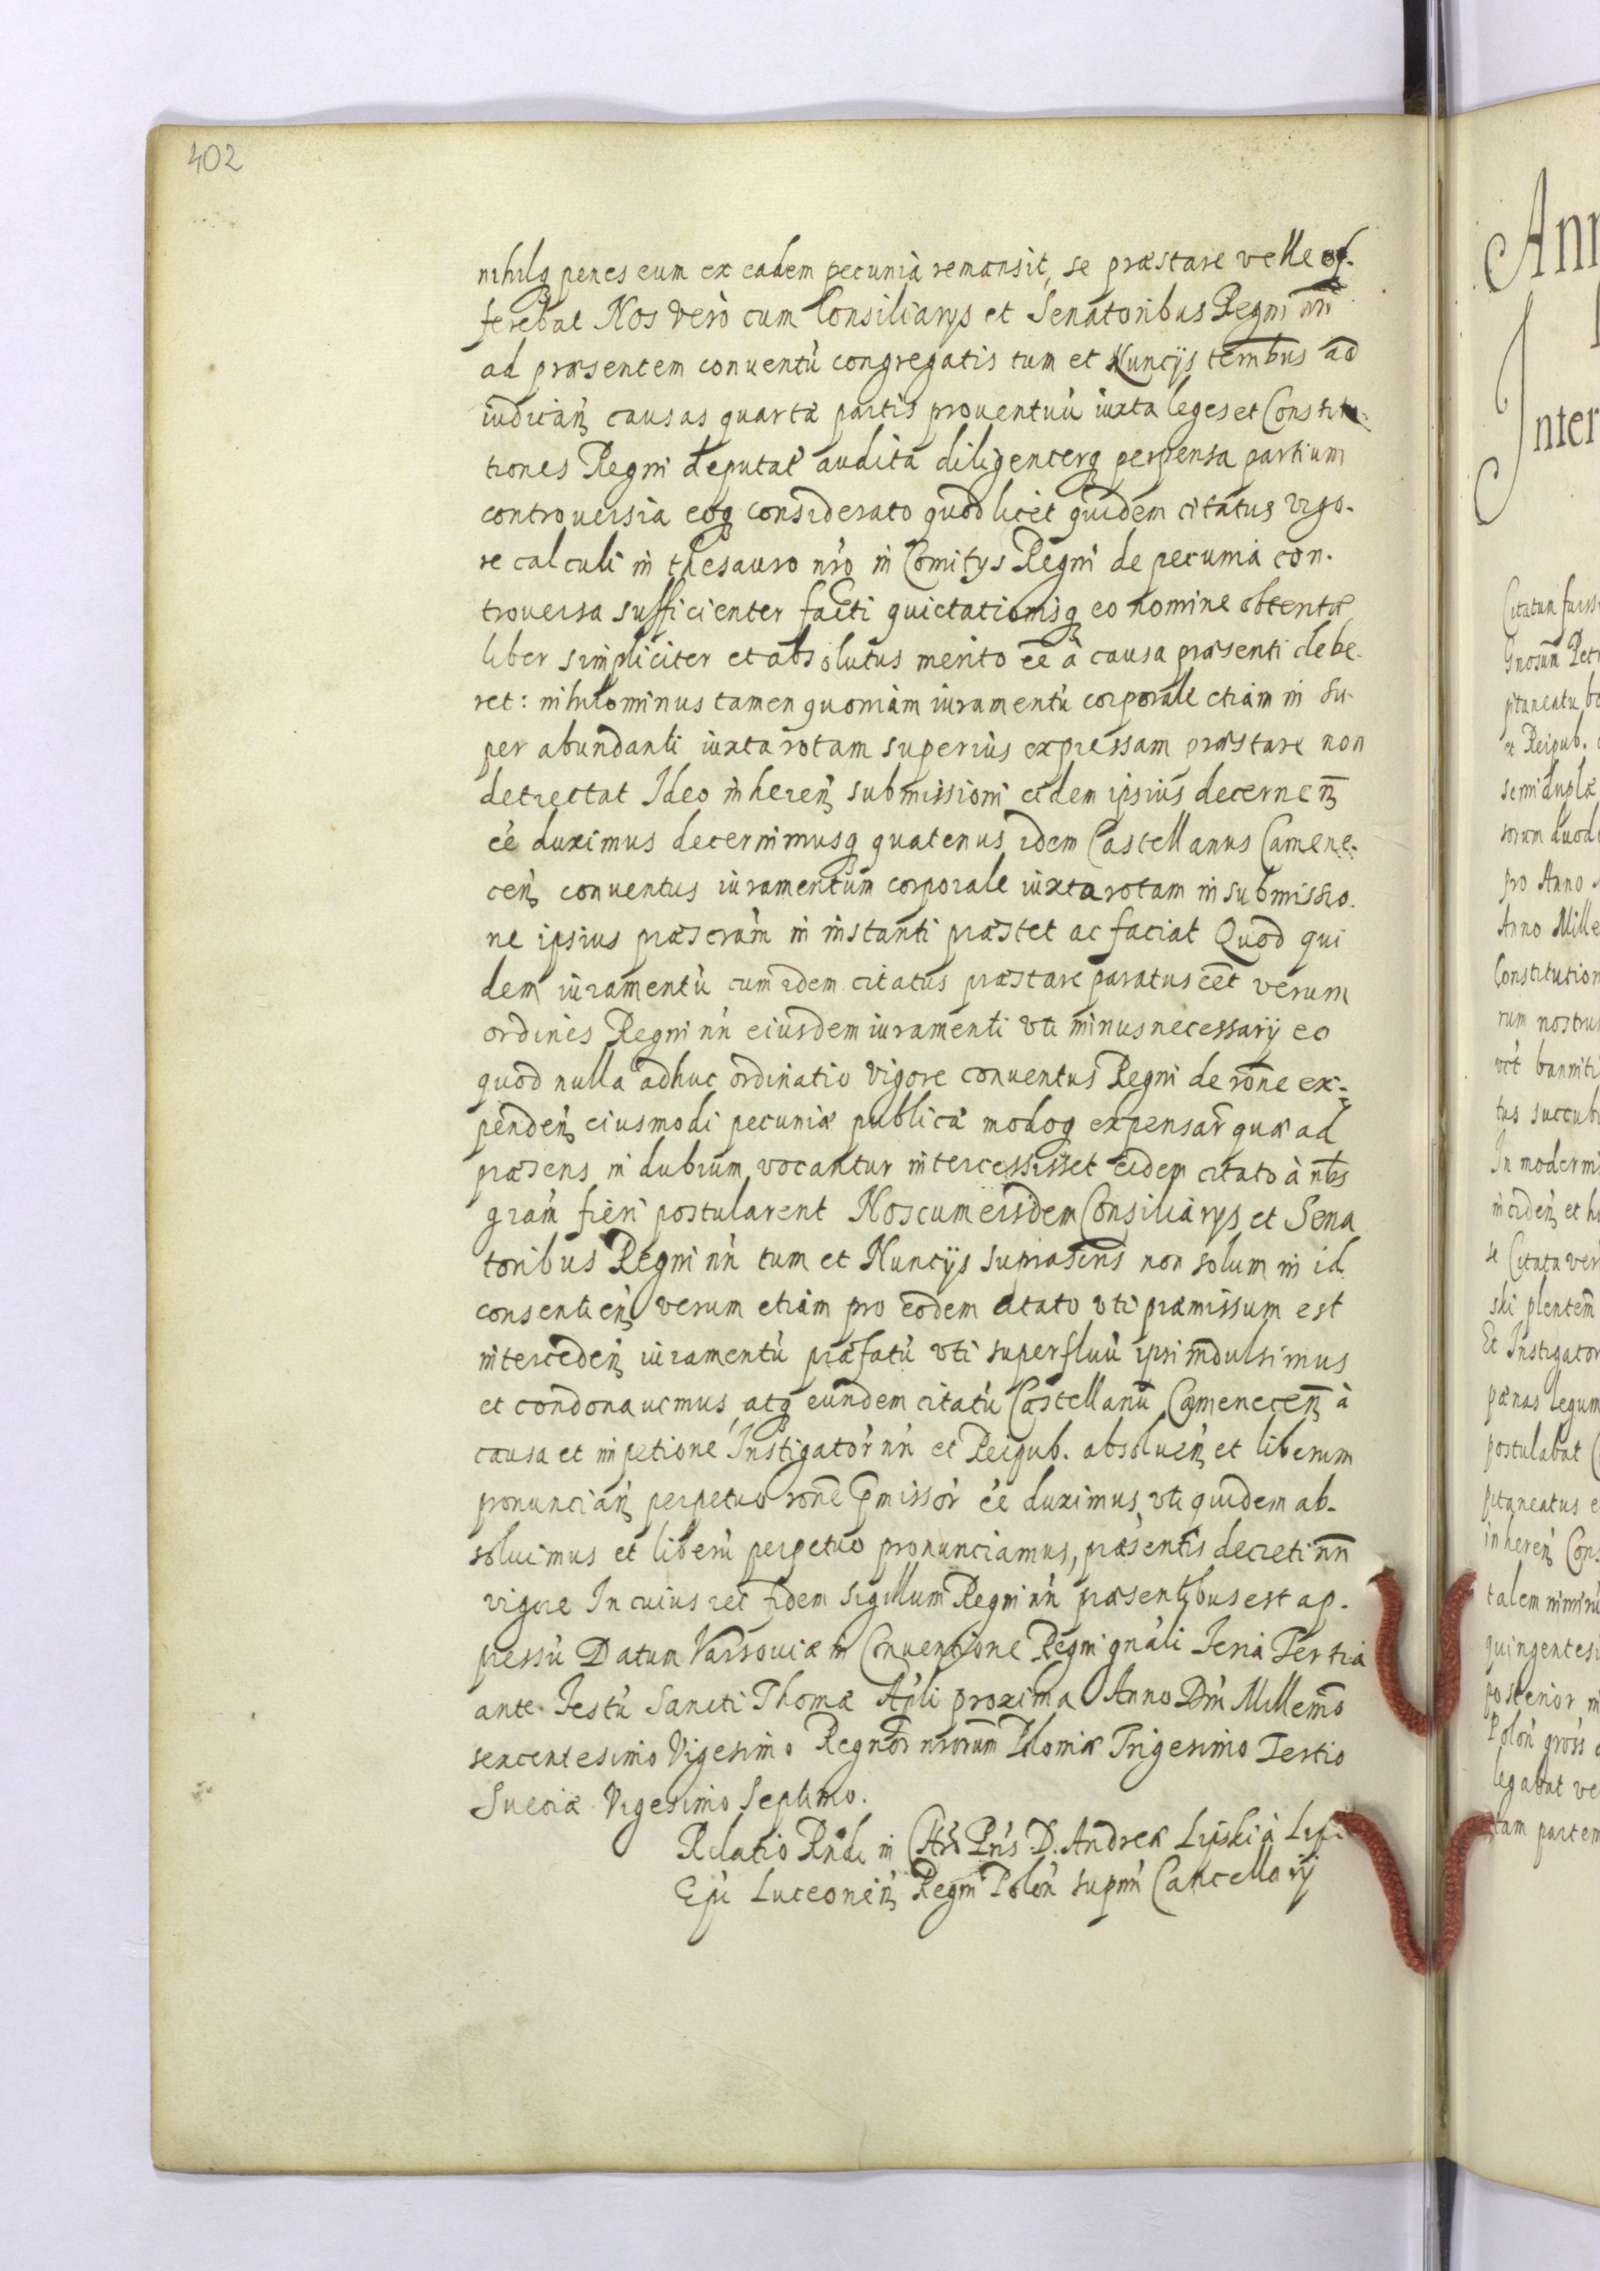 402
nihilq penes eum ex eadem pecunia remansit, se præstare velle of-
ferebat Nos verò cum Consiliarys et Senatoribus Regni nri
ad præsentem conuentũ congregatis tum et Nuncijs terribus ad
iudican̄ causas quartæ partis prouentuũ iuxta leges et Constitu-
tiones Regni deputat̃ audita diligenterq perpensa partium
controuersia eoq considerato quod licet quidem citatus vigo-
re calculi in thesauro nr̃o in Comitys Regni de pecunia con-
trouersa sufficienter facti quietationisq eo nomine obtentæ
liber simpliciter et absolutus merito eẽ à causa præsenti debe-
ret: nihilominus tamen quoniam iuramentũ corporale etiam in su-
per abundanti iuxta rotam superius expressam præstare non
detrectat Ideo inheren̄ submissioni eidem ipsius decernen̄
eẽ duximus decernimusq quatenus idem Castellanus Camene-
cen̄ conuentus iuramentum corporale iuxta rotam in submissio-
ne ipsius præscram̃ in instanti præstet ac faciat Quod qui
dem iuramentũ cum idem citatus præstare paratus eẽt verum
ordines Regni nr̃i eiusdem iuramenti vti minus necessarij eo
quod nulla adhuc ordinatio vigore conuentus Regni de rõne ex-
penden̄ eiusmodi pecuniæ publicæ modoq expensar̃ quæ ad
præsens in dubium vocantur intercessisset eidem citato à nõbs
gram̃ fieri postularent Nos cum eisdem Consiliarys et Sena
toribus Regni nr̃i tum et Nuncijs suprascris non solum in id
consentien̄ verum etiam pro eodem citato vti præmissum est
interceden̄ iuramentũ præfatũ vti superfluũ ipsi indulsimus
et condonauimus, atq eundem citatũ Castellanũ Camenecen̄ à
causa et impetione Instigator̃ nr̃i et Reipub. absoluen̄ et liberum
pronuncian̄ perpetuo rõne p̃missor̃ eẽ duximus, vti quidem ab-
soluimus et liberũ perpetuo pronunciamus, præsentis decreti nr̃i
vigore In cuius rei fidem sigillum Regni nr̃i præsentibus est ap-
pressũ Datum Varsouiæ in Conuentione Regni gnãli Feria Tertia
ante Festũ Sancti Thomæ Apli proxima Anno Dñi Millemõ
sexcentesimo Vigesimo Regnor̃ nrorum Poloniæ Trigesimo Tertio
Sueciæ Vigesimo Septimo.
Relatio Rndi in Chrõ Pris D. Andreæ Lipski à Lipi
Epi Luceonen̄ Regni Polon̄ supmi Cancellarij
Ann
Inter
Citatum fuiss
et Reipub.
semiduplæ
pro Anno
Anno Mille
Constitution
rum nostru
tus succub
In moderni
se Citata ver
Et Instigator
pœnas legum
postulabat
pitaneatus
inheren̄ Cons
quingentesi
posterior
Polon̄ gross
legabat ve
tam partem